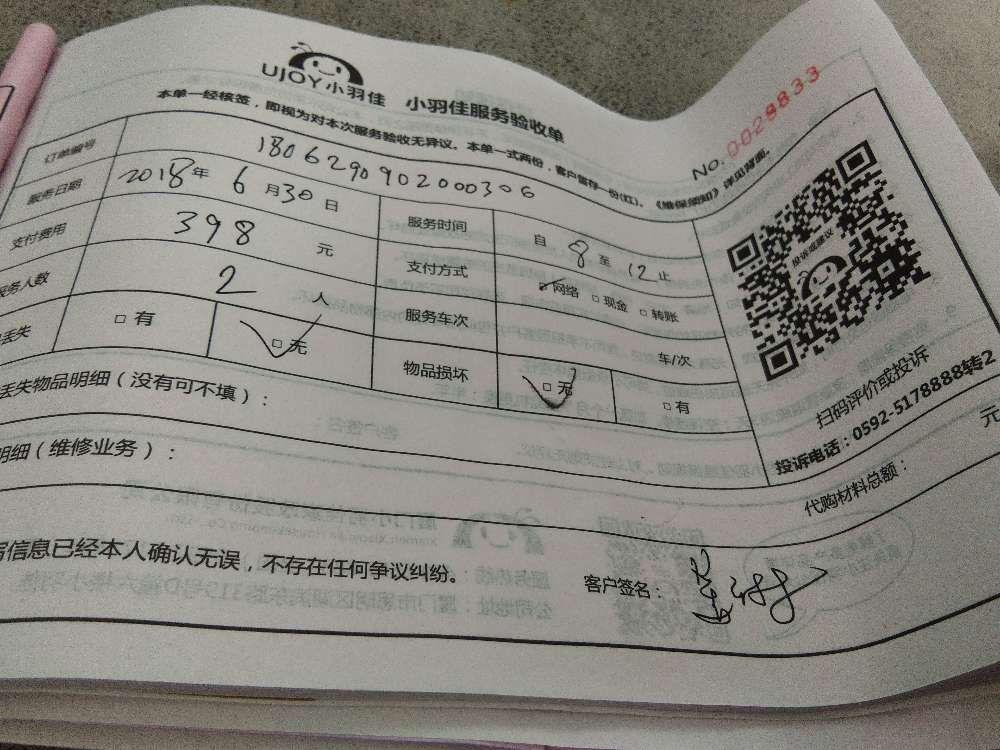 UJOY小羽佳 小羽佳服务验收单
No. 0028833
本单一经核签，即视为对本次服务验收无异议。本单一式两份，客户留存一份(红)。《维保须知》详见背面。
订单编号 1806290902000306
服务日期 2018年6月30日 服务时间 自8至12止
支付费用 398元 支付方式 网络 □现金 □转账
服务人数 2人 服务车次 车/次
丢失 □有 □无 物品损坏 □无 □有
投诉或建议
扫码评价或投诉
投诉电话：0592-5178888转2
丢失物品明细（没有可不填）：
明细（维修业务）： 代购材料总额： 元
信息已经本人确认无误，不存在任何争议纠纷。 客户签名：